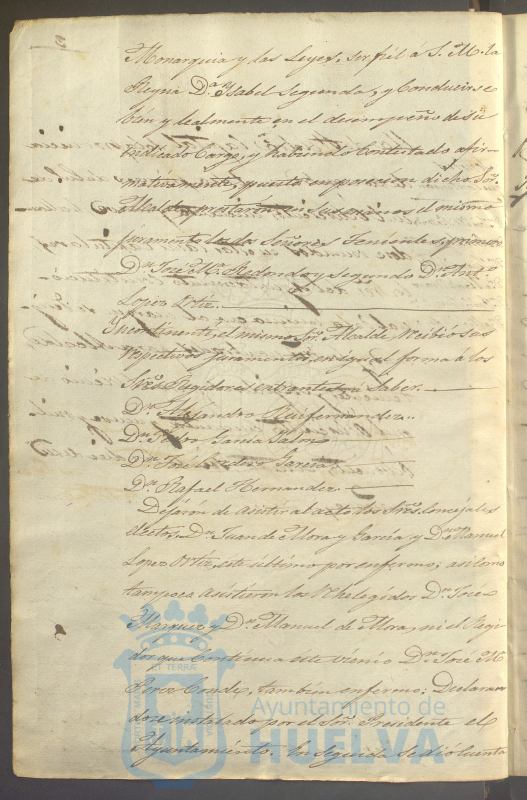 Monarquia y las Leyes, ser fiél a S. M. la
Reyna D.ª Isabel Segunda, y Conducirse
bien y lealmente en el desempeño de su
indicado Cargo; y habiendo Contestado afir-
mativamente, puesto en posecion dicho Sr.
Alcalde el mismo
juramento los Señores Tenientes, primero
Dn. José Mª. Redondo y Segundo Dn. Antº.
Lopez Ortiz.
Incontinente, el mismo Sr. Alcalde, recibió sus
respectivos juramentos, en igual forma á los
Sres. Regidores entrantes á saber.
Dn. Alejandro Ruifernandez
Dn. Garcia
Dn. José Cordero Garcia
Dn. Rafael Hernandez
Dejaron de asistir al acto los Sres. Concejales
electos, Dn. Juan de Mora y Garcia y Dn. Manuel
Lopez Ortiz, éste ultimo por enfermo; asi como
tampoco asistieron los Rhelegidos Dn. José
Marquez y Dn. Manuel de Mora, ni el Regi-
dor que Continúa este vienio Dn. José M.
Perez Conde, también enfermo; Declaran-
dose instalado por el Señ. Presidente el
Ayuntamiento. En Seguida se dió Cuenta
Ayuntamiento de
HUELVA